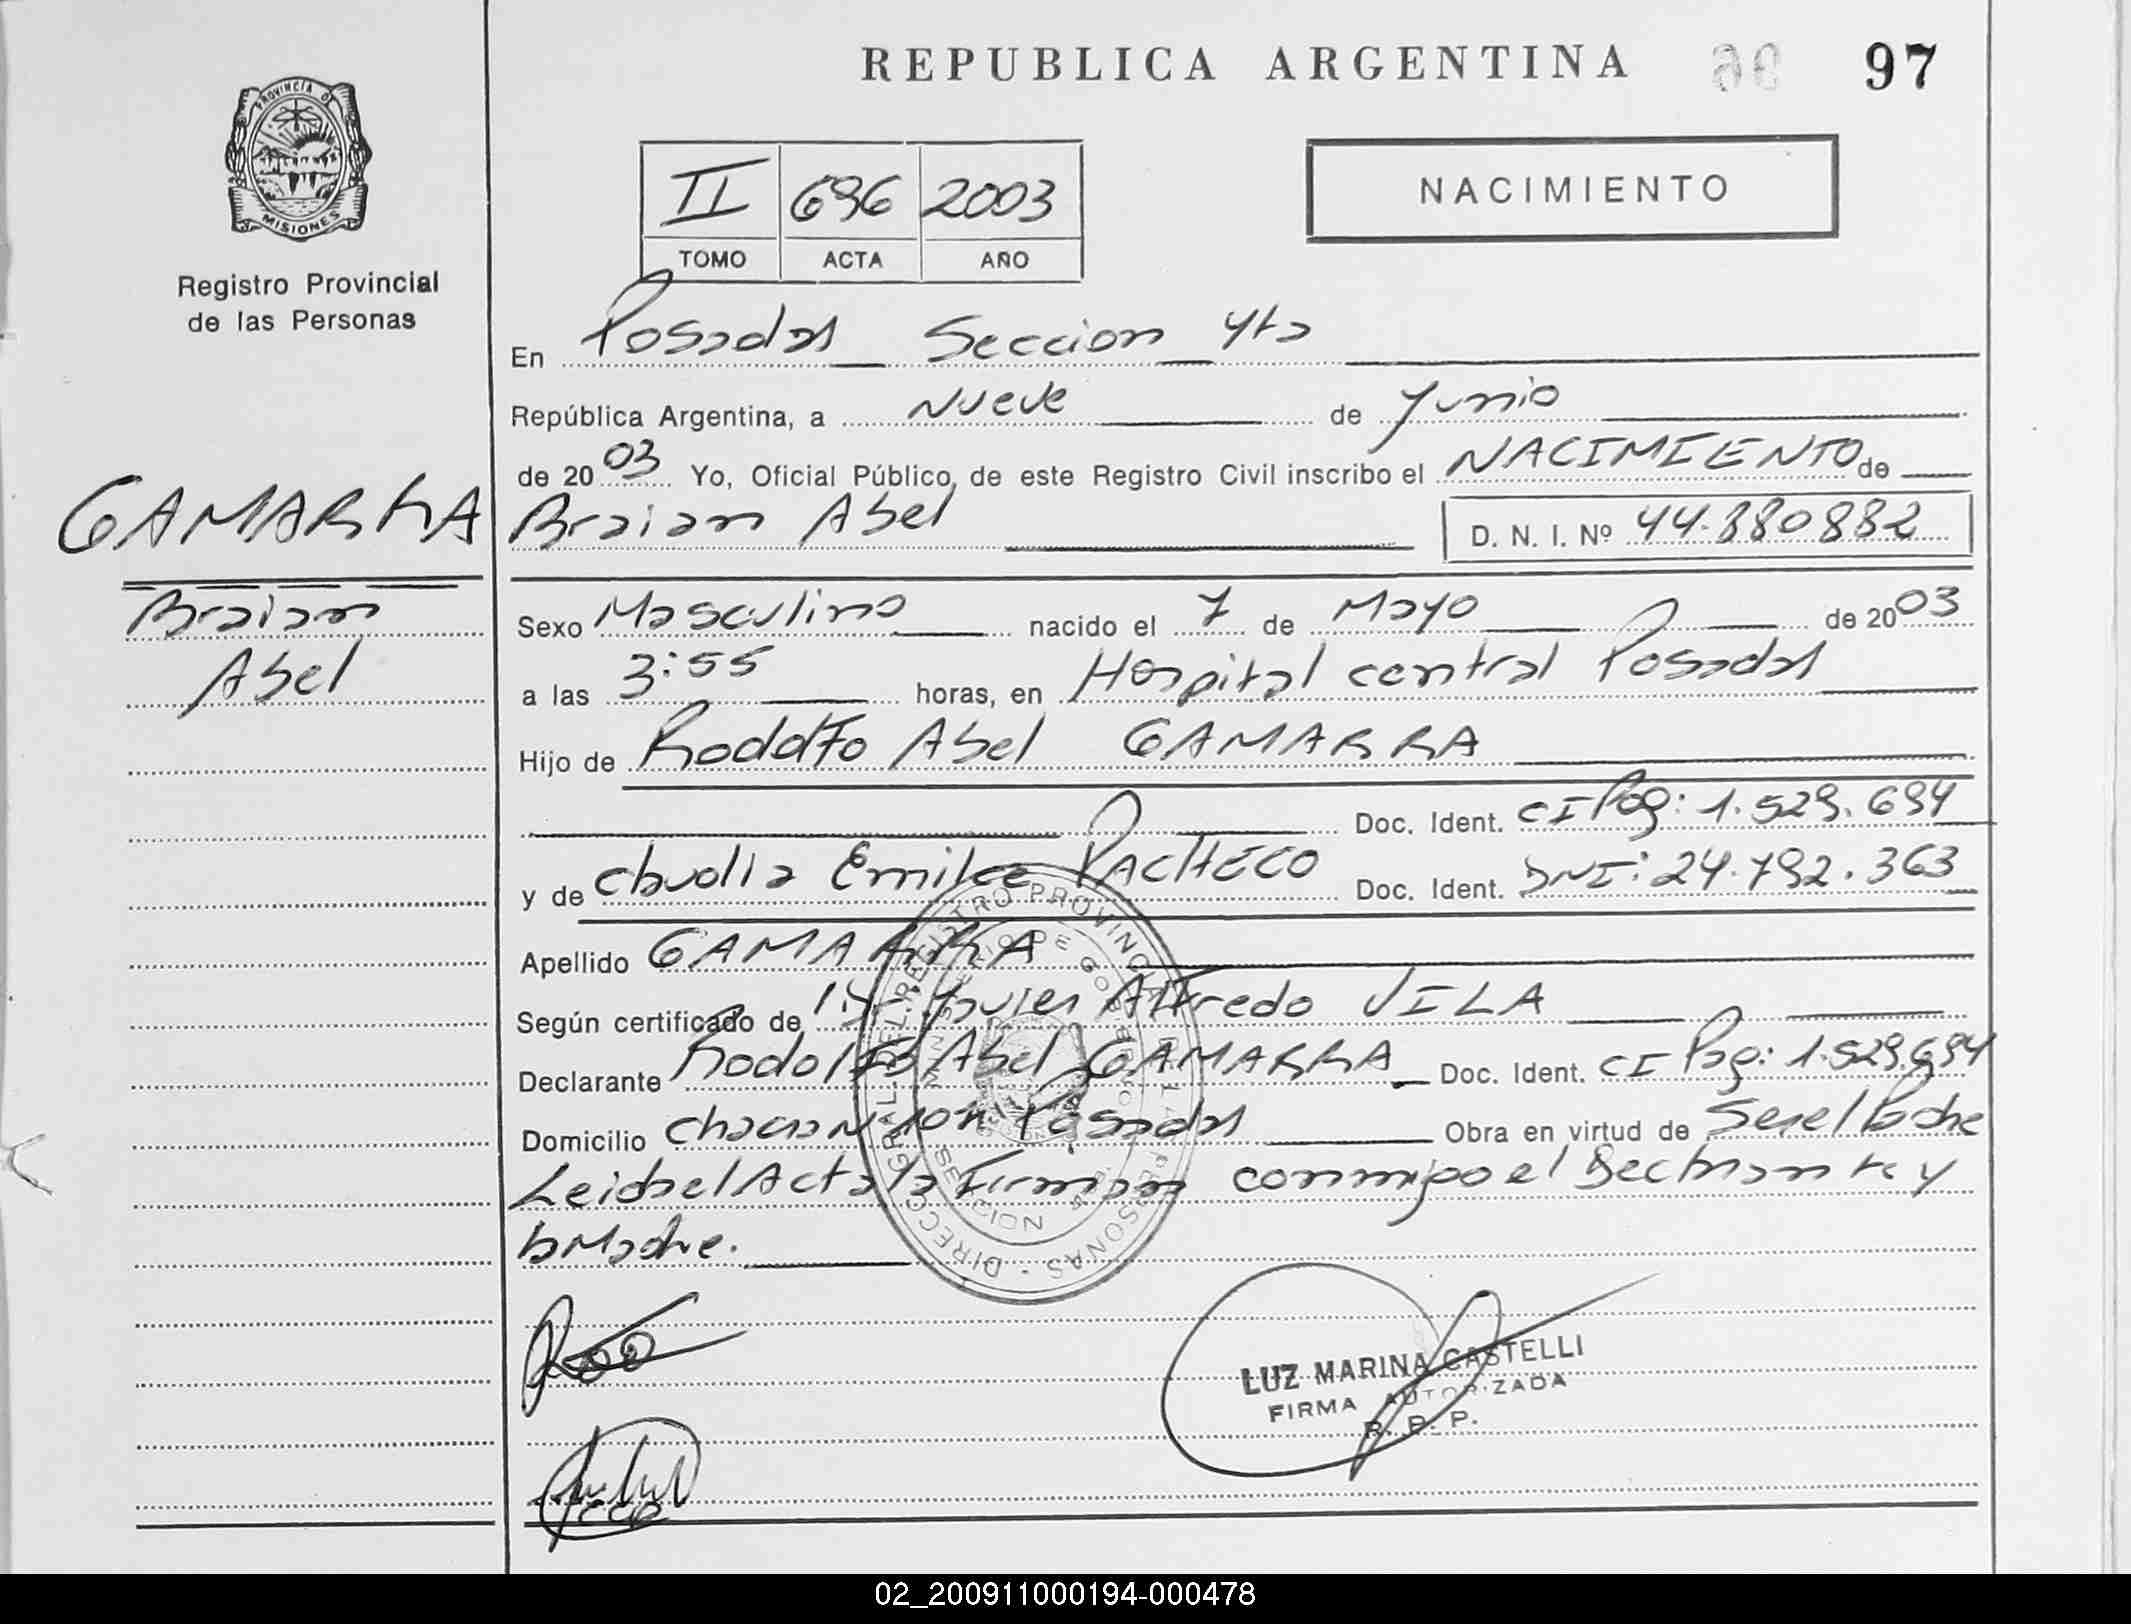 REPUBLICA ARGENTINA 97
PROVINCIA DE
MISIONES
Registro Provincial
de las Personas
II 696 2003
TOMO ACTA AÑO
NACIMIENTO
En Posadas Seccion 4ta
República Argentina, a Nueve de Junio
de 2003 Yo, Oficial Público de este Registro Civil inscribo el NACIMIENTO de
GAMARRA
Braian
Abel
Braian Abel D. N. I. Nº 44.880882
Sexo Masculino nacido el 7 de Mayo de 2003
a las 3:55 horas, en Hospital central Posadas
Hijo de Rodolfo Abel GAMARRA
Doc. Ident. CI Pog: 1.529.694
y de Claudia Emilce PACHECO Doc. Ident. DNI: 24.792.363
Apellido GAMARRA
Según certificado de Javier Alfredo VILA
Declarante Rodolfo Abel GAMARRA Doc. Ident. CI Pog: 1.529.694
Domicilio Posadas Obra en virtud de Ser el Padre
Leida el Acta la Firman conmigo el Declarante y
la Madre.
LUZ MARINA CASTELLI
FIRMA AUTORIZADA
R. P. P.
02_200911000194-000478